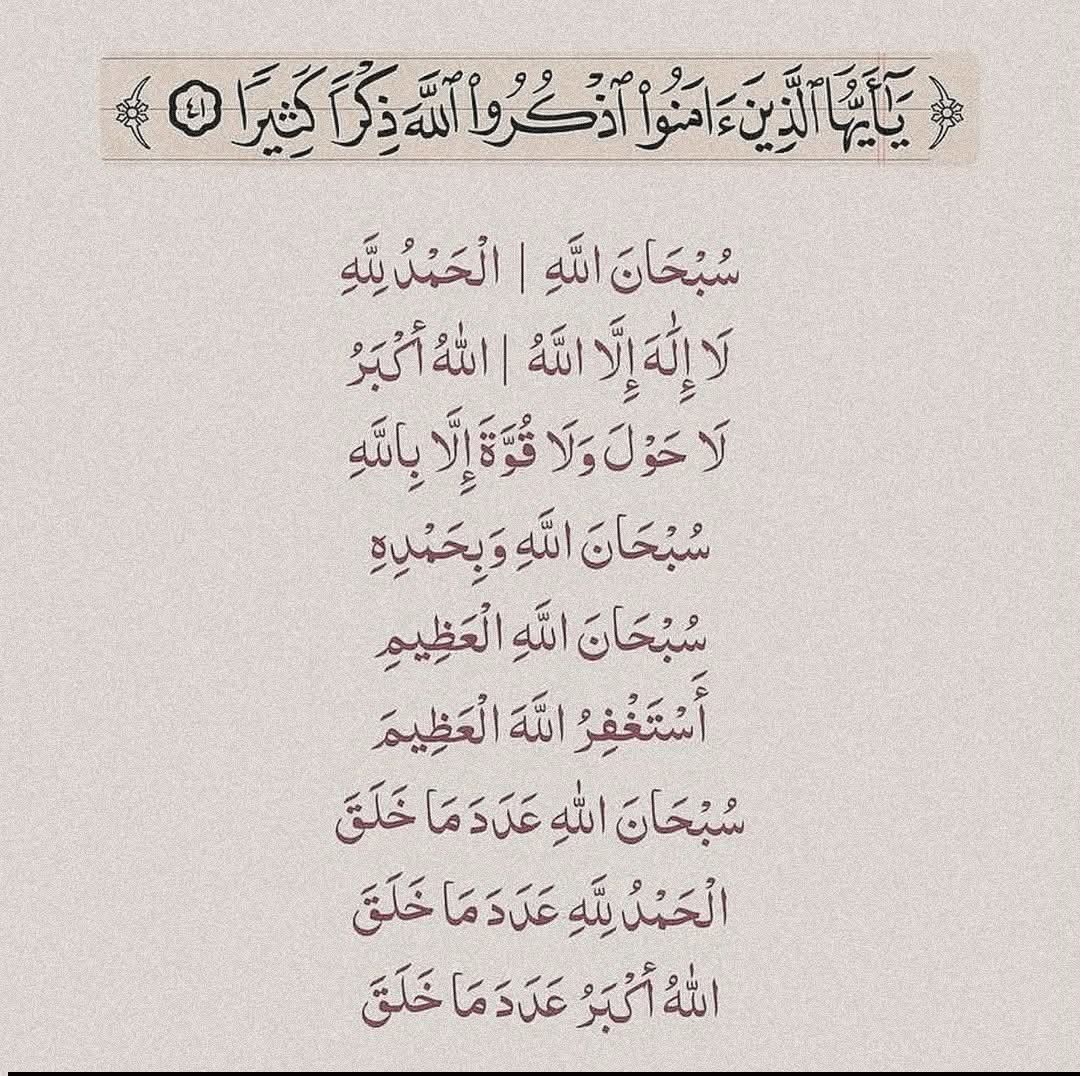 ﴿يَٰٓأَيُّهَا ٱلَّذِينَ ءَامَنُوا۟ ٱذْكُرُوا۟ ٱللَّهَ ذِكْرًا كَثِيرًا ٤١﴾
سُبْحَانَ اللَّهِ | الْحَمْدُ لِلَّهِ
لَا إِلَٰهَ إِلَّا اللَّهُ | اللهُ أَكْبَرُ
لَا حَوْلَ وَلَا قُوَّةَ إِلَّا بِاللَّهِ
سُبْحَانَ اللَّهِ وَبِحَمْدِهِ
سُبْحَانَ اللَّهِ الْعَظِيمِ
أَسْتَغْفِرُ اللَّهَ الْعَظِيمَ
سُبْحَانَ اللهِ عَدَدَ مَا خَلَقَ
الْحَمْدُ لِلَّهِ عَدَدَ مَا خَلَقَ
اللهُ أَكْبَرُ عَدَدَ مَا خَلَقَ